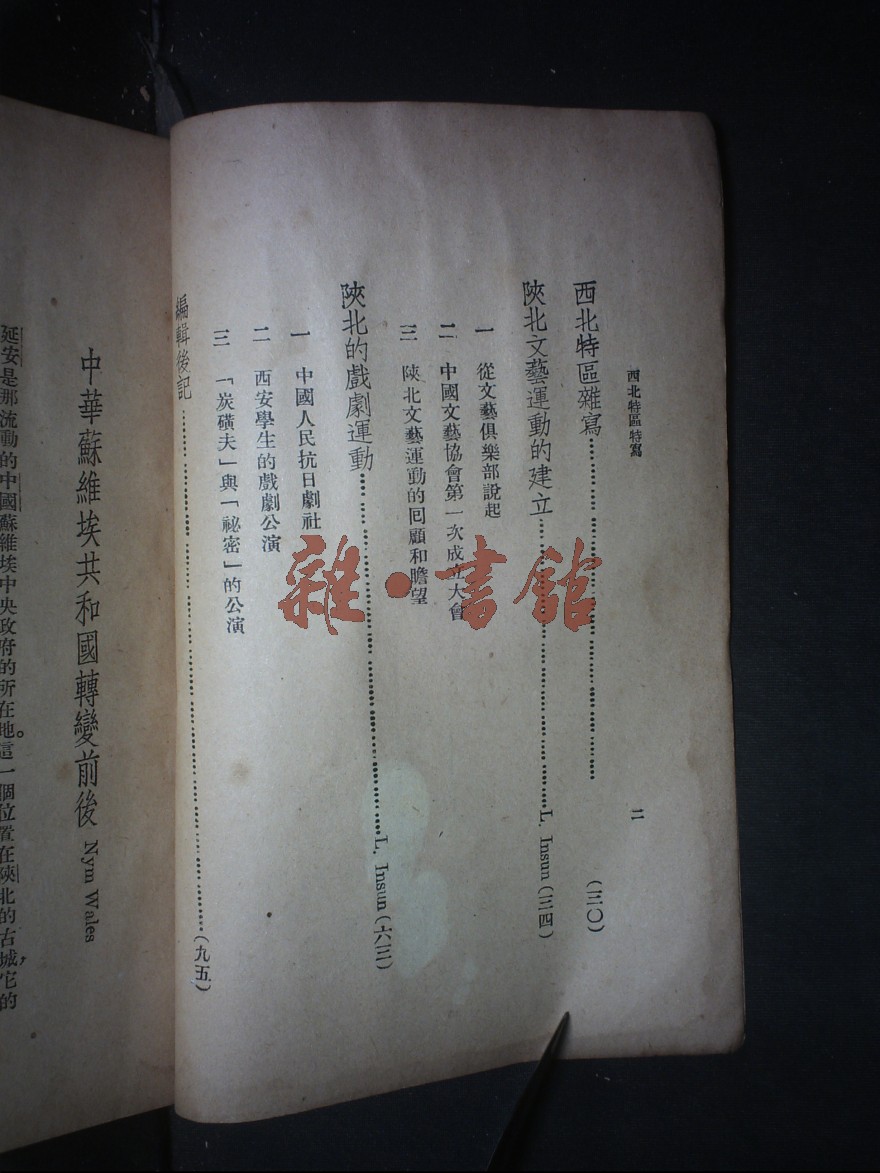 西北特區特寫
二
西北特區雜寫……(三〇)
陝北文藝運動的建立……L. Insun(三四)
一 從文藝俱樂部說起
二 中國文藝協會第一次成立大會
三 陝北文藝運動的回顧和瞻望
陝北的戲劇運動……L. Insun(六三)
一 中國人民抗日劇社
二 西安學生的戲劇公演
三 「炭磺夫」與「祕密」的公演
編輯後記……(九五)
中華蘇維埃共和國轉變前後 Nym Wales
延安是那流動的中國蘇維埃中央政府的所在地。這一個位置在陝北的古城,它的
雜·書館